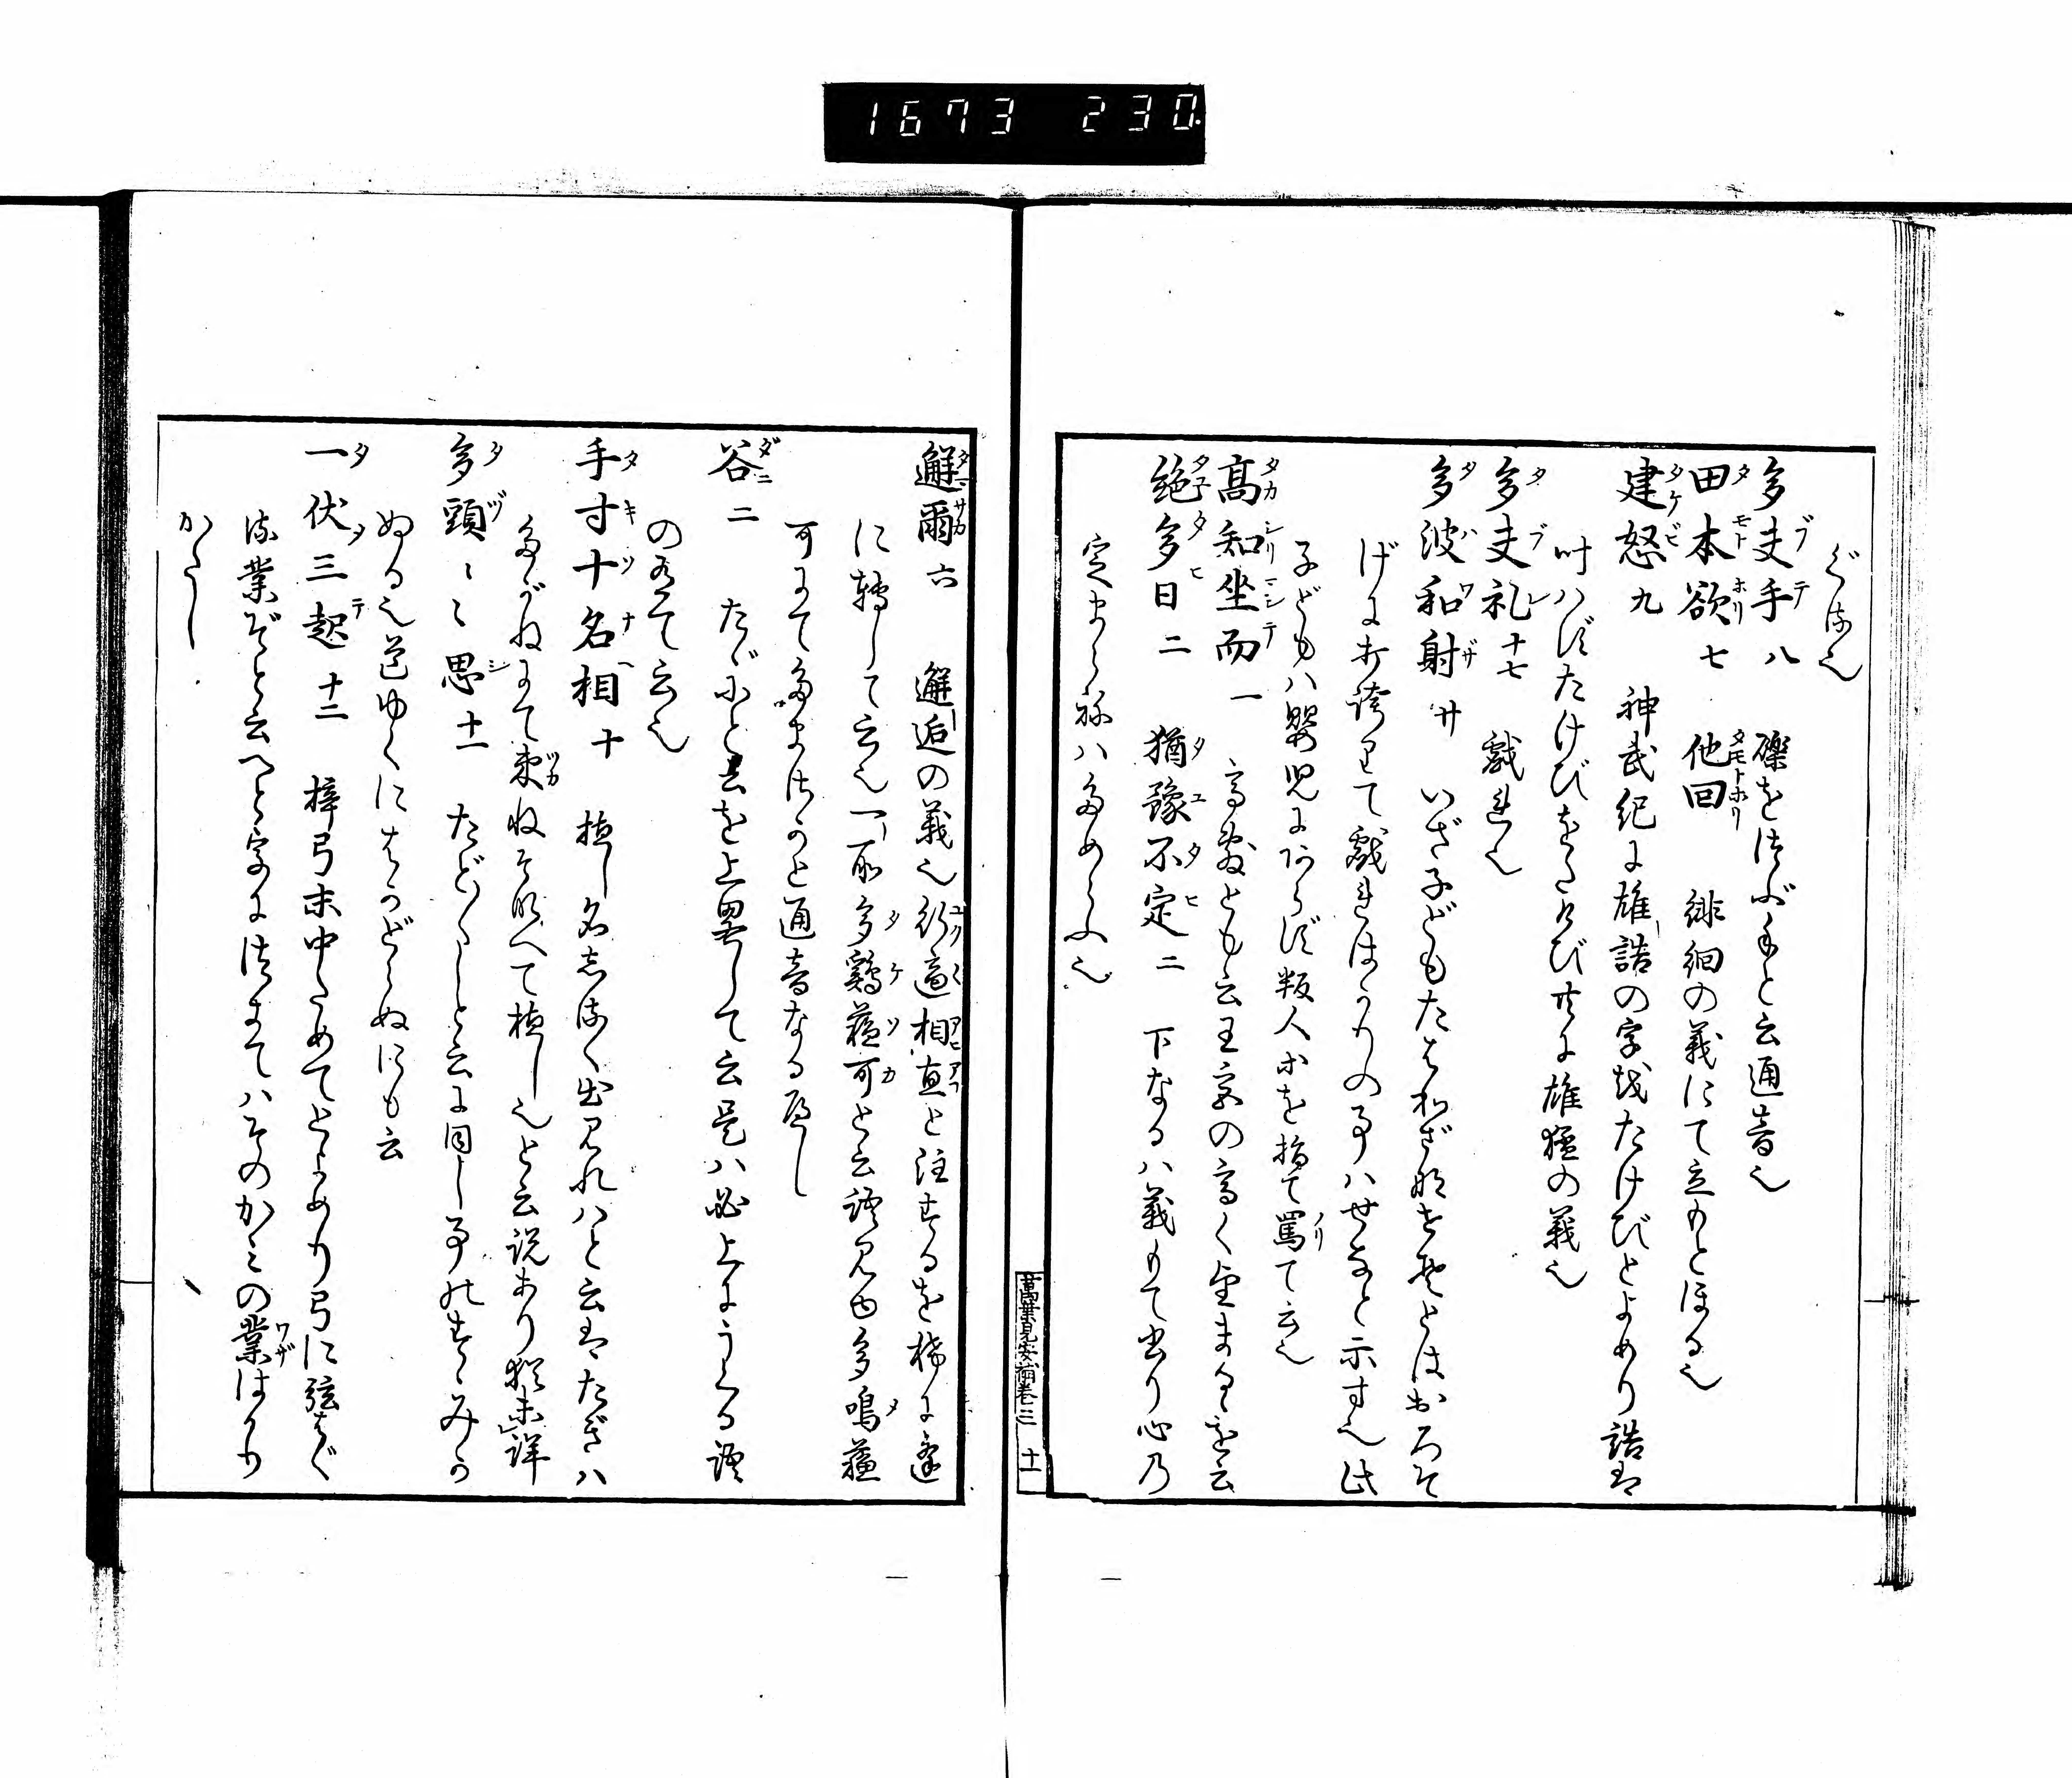 1673 230
ぐる也
多夫手八 礫をばつぶてと云通音也
田本欲七 他回 徘徊の義にて立もとほる也
建怒九 神武紀に雄誥の字をたけびとよめり誥は
叶ハずたけびをたけび共に雄猛の義也
多夫礼十七 戯れ也
多波和射廿 いざ子どもたはわざなせそとはおろそ
げに打誇りて戯ればかりの事ハせなと示す也此
子どもハ嬰児にあらず叛人等を指て罵て云也
高知坐而一 高敷とも云王宮の高く坐ますを云
絶多日二 猶豫不定二 下なるハ義もて書り心乃
定まらぬハためらふ也
萬葉見安補巻三 十一
邂爾六 邂逅の義也行適相直と注するを稀に逢
に転して云也一所多鶏蘊可と云語見ゆ多鳴蘊
可にてたまさかと通音なる べし
谷二 だにと云を上畧して云是ハ必上にうくる語
の有て云也
手寸十名相十 植し名しるく出見れハと云はたぎハ
たがねにて束ねそなへて植し也と云説あり猶未詳
多頭〻〻思十一 たど〳〵しと云に同し事のすゝみか
ぬる也道ゆくにはかどらぬにも云
一伏三起十二 梓弓末中ためてとよめり弓に弦はぐ
る業ぞと云へど字につきてハそのかみの業はかり
かたし